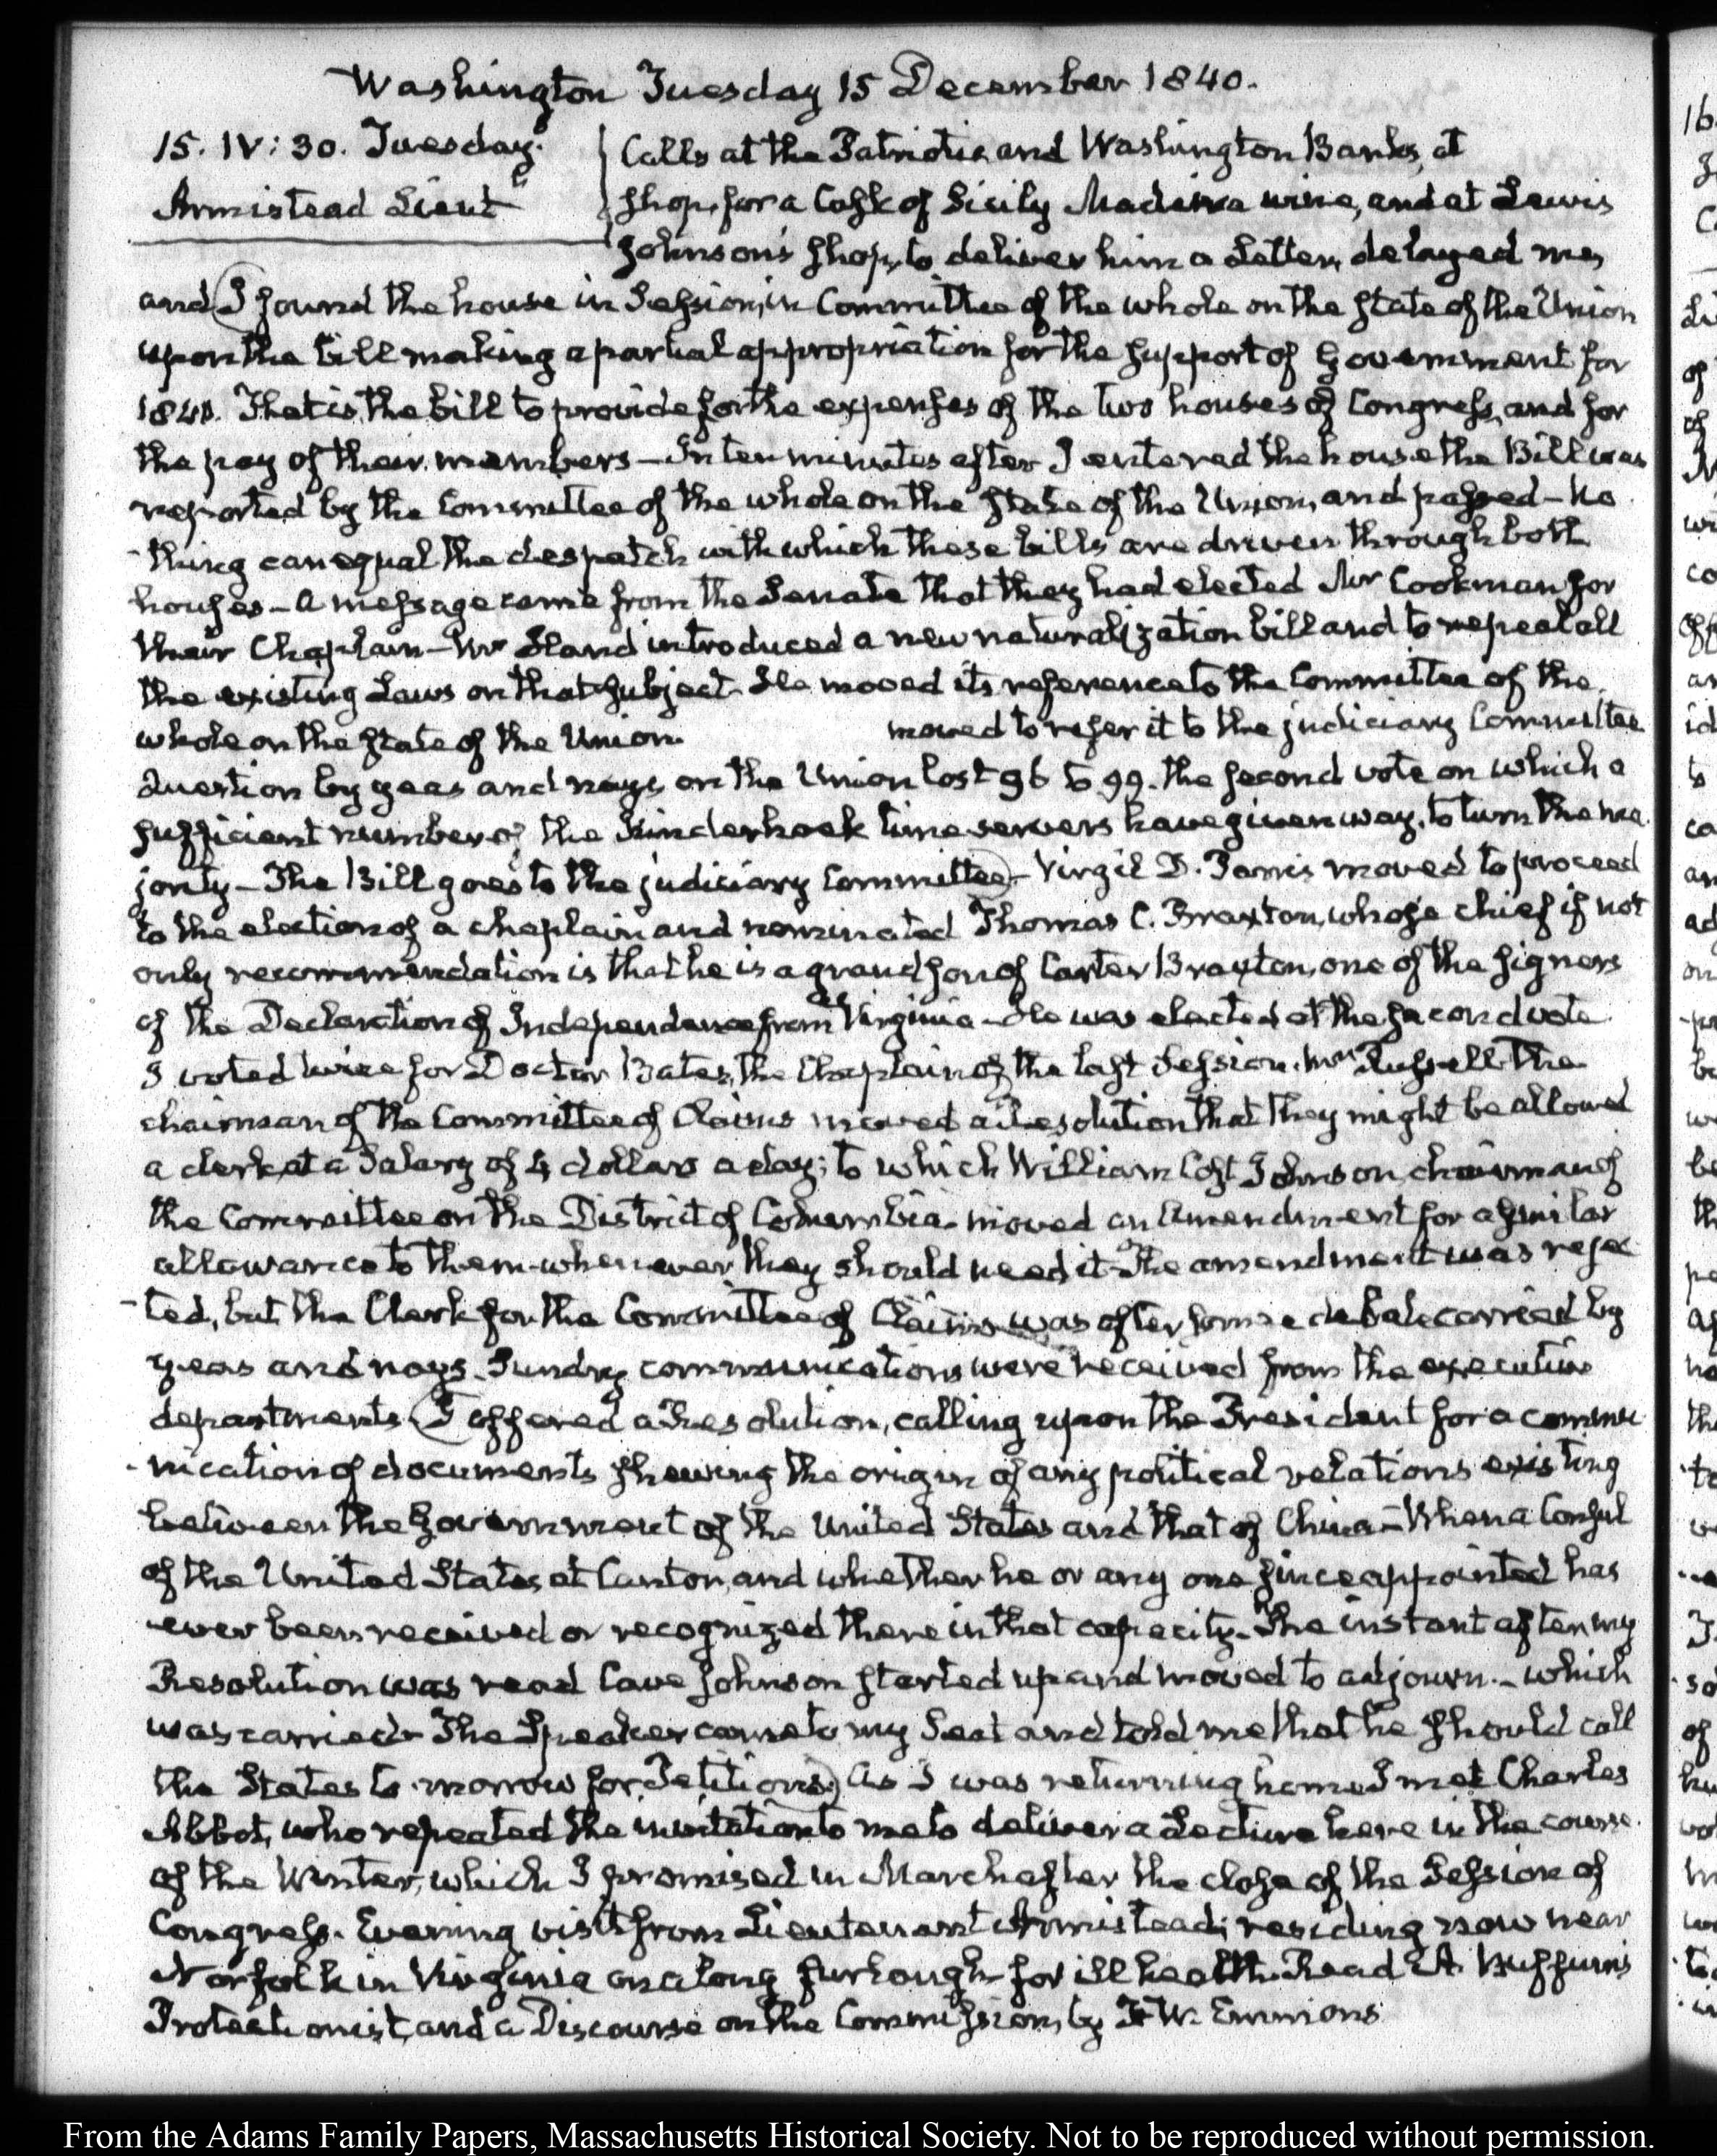 Washington Tuesday 15 December 1840.
15. IV: 30. Tuesday.
Armistead Lieut
Calls at the Patriotic, and Washington Banks, at
shop, for a Cask of Sicily Madeira wine, and at Lewis
Johnson's shop, to deliver him a Letter, delayed me,
and I found the house in Session, in Committee of the whole on the state of the Union
upon the bill making a partial appropriation for the support of Government for
1841. That is, the bill to provide for the expenses of the two houses of Congress, and for
the pay of their members – In ten minutes after I entered the house the Bill was
reported by the Committee of the whole on the state of the Union, and passed – No
-thing can equal the despatch with which these bills are driven through both
houses – A message came from the Senate that they had elected Mr Cookman for
their Chaplain – Mr Hand introduced a new naturalization bill and to repeal all
the existing Laws on that subject. He moved its reference to the Committee of the
whole on the state of the Union. moved to refer it to the judiciary Committee
Question by yeas and nays, on the Union lost 96 to 99. the second vote on which a
sufficient number of the Kinderhook time servers have given way, to turn the ma
jority – The Bill goes to the judiciary Committee – Virgil D. Parris moved to proceed
to the election of a chaplain and nominated Thomas C. Braxton, whose chief if not
only recommendation is that he is a grandson of Carter Braxton, one of the signers
of the Declaration of Independence from Virginia – He was elected at the second vote
I voted twice for Doctor Bates, the Chaplain of the last Session. Mr Russell the
chairman of the Committee of Claims moved a Resolution that they might be allowed
a clerk, at a Salary of 4 dollars a day; to which William Cost Johnson, chairman of
the Committee on the District of Columbia – moved an Amendment for a similar
allowance to them whenever they should need it – The amendment was rejec
-ted, but the Clerk for the Committee of Claims was after some debate carried by
yeas and nays. Sundry communications were received from the executive
departments. I offered a Resolution, calling upon the President for a commu
-nication of documents shewing the origin of any political relations existing
between the Government of the United States and that of China – When a Consul
of the United States, at Canton, and whether he or any one since appointed has
ever been received or recognized there in that capacity. The instant after my
Resolution was read Cave Johnson started up and moved to adjourn. – which
was carried – The Speaker came to my Seat and told me that he should call
the States to-morrow for Petitions. As I was returning home I met Charles
Abbot, who repeated the invitation to me to deliver a Lecture here in the course
of the Winter, which I promised in March after the close of the Session of
Congress. Evening visit from Lieutenant Armistead; residing now near
Norfolk in Virginia on a long furlough for ill health. Read A. Buffum's
Protectionist, and a Discourse on the Commission, by F W. Emmons
From the Adams Family Papers, Massachusetts Historical Society. Not to be reproduced without permission.